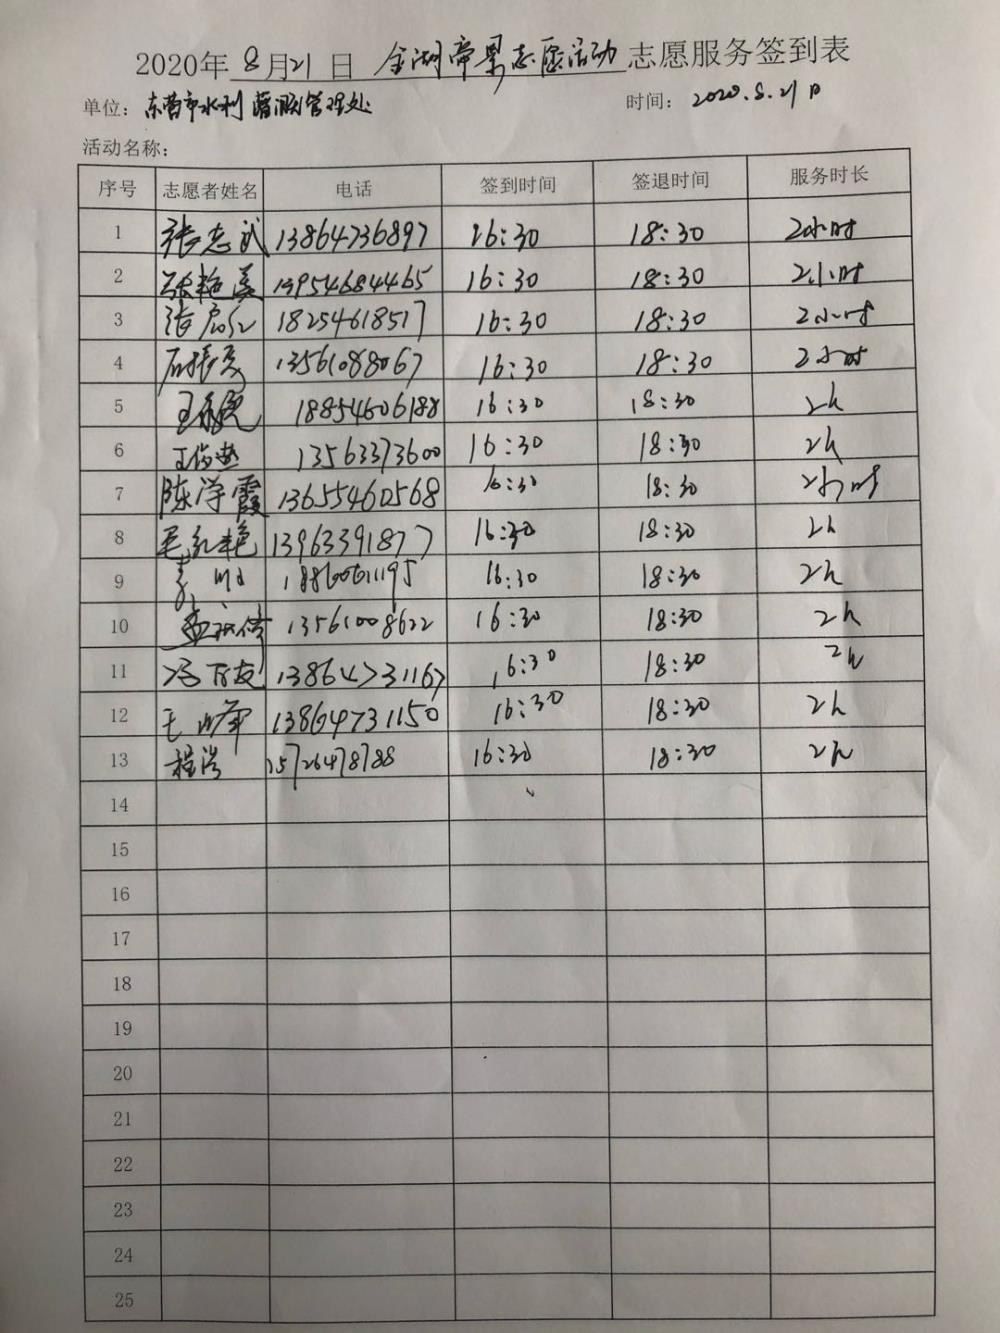 2020年8月21日 金湖帝景志愿活动 志愿服务签到表
单位: 东营市水利 管理处 时间: 2020.8.21日
活动名称:
序号 志愿者姓名 电话 签到时间 签退时间 服务时长
1 张志武 13864736897 16:30 18:30 2小时
2 张艳 13954684465 16:30 18:30 2小时
3 张 18254618517 16:30 18:30 2小时
4 13561088067 16:30 18:30 2小时
5 王 18854606188 16:30 18:30 2h
6 王 13563373600 16:30 18:30 2h
7 陈学霞 13655460568 16:30 18:30 2小时
8 毛红艳 13963391877 16:30 18:30 2h
9 16:30 18:30 2h
10 13561008622 16:30 18:30 2h
11 冯 友 13864731167 16:30 18:30 2h
12 王 峰 13864731150 16:30 18:30 2h
13 程浩 15726478788 16:30 18:30 2h
14
15
16
17
18
19
20
21
22
23
24
25